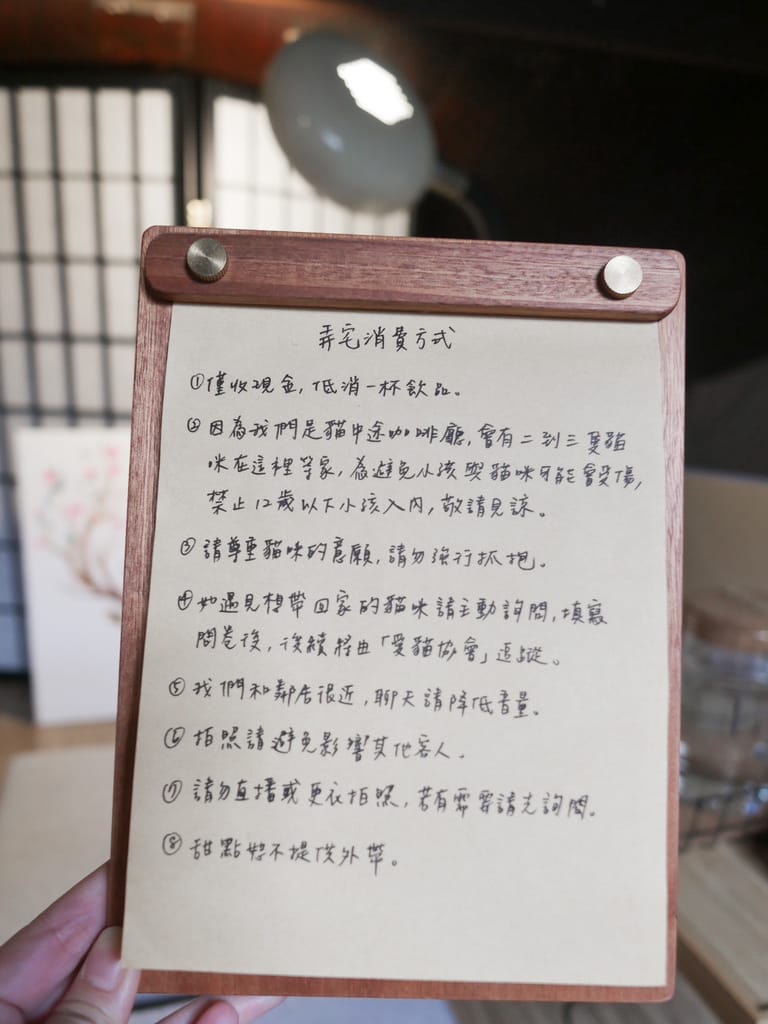 弄宅消費方式
①僅收現金,低消一杯飲品。
②因為我們是貓中途咖啡廳,會有二到三隻貓
咪在這裡等家,為避免小孩與貓咪可能會受傷,
禁止12歲以下小孩入內,敬請見諒。
③請尊重貓咪的意願,請勿強行抓抱。
④如遇見想帶回家的貓咪請主動詢問,填寫
問卷後,後續經由「愛貓協會」追蹤。
⑤我們和鄰居很近,聊天請降低音量。
⑥拍照請避免影響其他客人。
⑦請勿直播或更衣拍照,若有需要請先詢問。
⑧甜點恕不提供外帶。